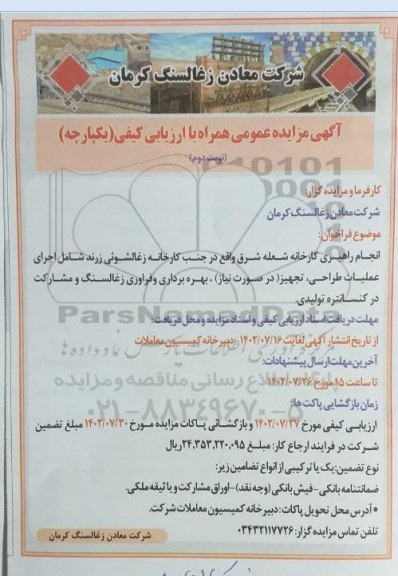 شرکت معادن زغالسنگ کرمان
آگهی مزایده عمومی همراه با ارزیابی کیفی (یکپارچه)
(نوبت دوم)
کارفرما و مزایده گزار:
شرکت معادن زغالسنگ کرمان
موضوع فراخوان:
انجام راهبری کارخانه شعله شرق واقع در جنب کارخانه زغالشوئی زرند شامل اجرای
عملیات طراحی، تجهیز( در صورت نیاز) ، بهره برداری وفراوری زغالسنگ و مشارکت
در کنسانتره تولیدی.
مهلت دریافت اسناد ارزیابی کیفی و اسناد مزایده و محل دریافت:
از تاریخ انتشار آگهی لغایت ۱۴۰۲/۰۷/۱۶- دبیرخانه کمیسیون معاملات
آخرین مهلت ارسال پیشنهادات:
تا ساعت ۱۵ مورخ ۱۴۰۲/۰۷/۲۶
زمان بازگشایی پاکت ها:
ارزیابی کیفی مورخ ۱۴۰۲/۰۷/۲۷ و بازگشائی پاکات مزایده مورخ ۱۴۰۲/۰۷/۳۰ مبلغ تضمین
شرکت در فرایند ارجاع کار: مبلغ ۲۴,۳۵۳,۲۲۰,۰۹۵ ریال
نوع تضمین: یک یا ترکیبی از انواع تضامین زیر:
ضمانتنامه بانکی - فیش بانکی (وجه نقد) - اوراق مشارکت و یا وثیقه ملکی.
* آدرس محل تحویل پاکات: دبیرخانه کمیسیون معاملات شرکت.
تلفن تماس مزایده گزار: ۰۳۴۳۲۱۱۷۷۲۶
شرکت معادن زغالسنگ کرمان
ParsNamadData
۰۲۱-۸۸۳۴۹۶۷۰-۵